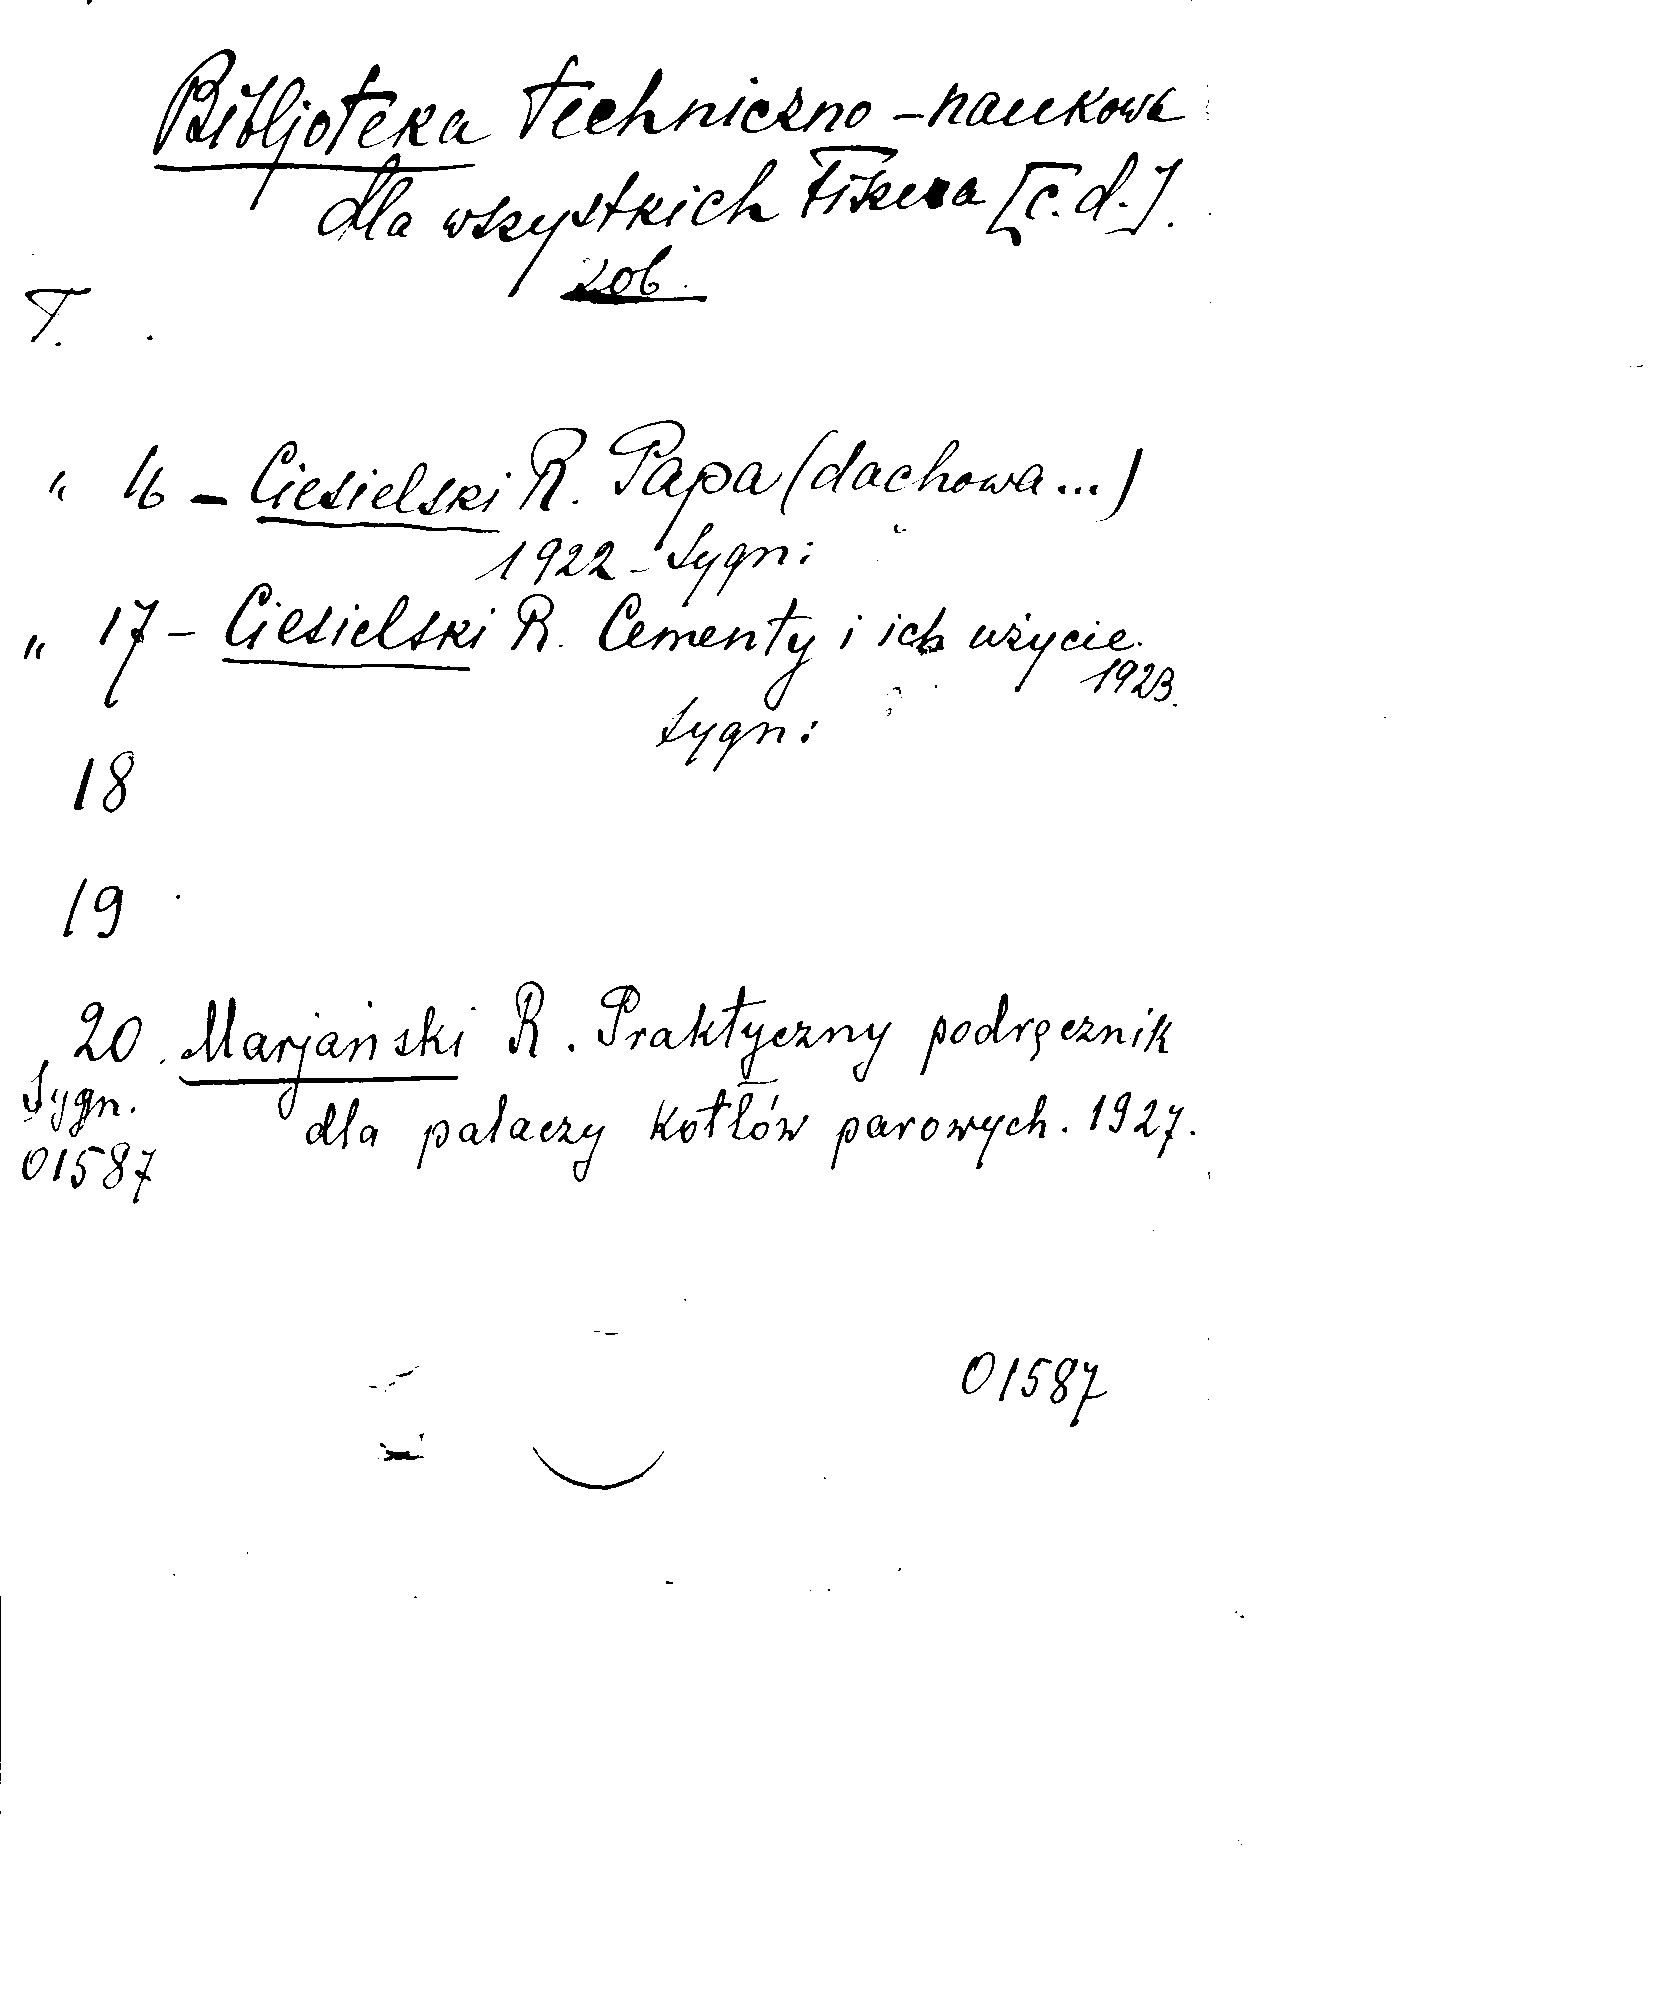 Bibljoteka techniczno-naukowa
dla wszystkich Fiszera [c.d.].
zob.
T.
" 16 – Ciesielski R. Papa (dachowa...)
1922 – Sygn:
" 17 – Ciesielski R. Cementy i ich użycie.
1923.
Sygn:
18
19
20. Marjański R. Praktyczny podręcznik
Sygn.
dla palaczy kotłów parowych. 1927.
01587
01587